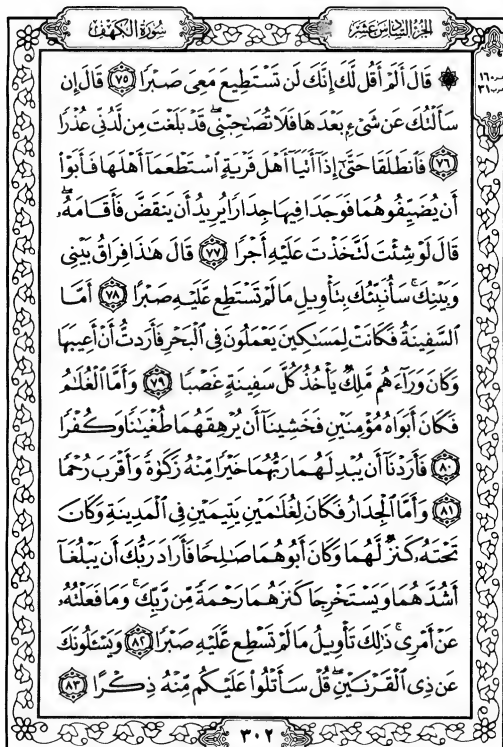 سُورَةُ الْكَهْفِ
الجُزْءُ السَّادِسَ عَشَرَ
۞ قَالَ أَلَمْ أَقُل لَّكَ إِنَّكَ لَن تَسْتَطِيعَ مَعِىَ صَبْرًا ﴿٧٥﴾ قَالَ إِن
سَأَلْتُكَ عَن شَىْءٍۭ بَعْدَهَا فَلَا تُصَـٰحِبْنِى ۖ قَدْ بَلَغْتَ مِن لَّدُنِّى عُذْرًا
﴿٧٦﴾ فَٱنطَلَقَا حَتَّىٰٓ إِذَآ أَتَيَآ أَهْلَ قَرْيَةٍ ٱسْتَطْعَمَآ أَهْلَهَا فَأَبَوْا۟
أَن يُضَيِّفُوهُمَا فَوَجَدَا فِيهَا جِدَارًا يُرِيدُ أَن يَنقَضَّ فَأَقَامَهُۥ ۖ
قَالَ لَوْ شِئْتَ لَتَّخَذْتَ عَلَيْهِ أَجْرًا ﴿٧٧﴾ قَالَ هَـٰذَا فِرَاقُ بَيْنِى
وَبَيْنِكَ ۚ سَأُنَبِّئُكَ بِتَأْوِيلِ مَا لَمْ تَسْتَطِع عَّلَيْهِ صَبْرًا ﴿٧٨﴾ أَمَّا
ٱلسَّفِينَةُ فَكَانَتْ لِمَسَـٰكِينَ يَعْمَلُونَ فِى ٱلْبَحْرِ فَأَرَدتُّ أَنْ أَعِيبَهَا
وَكَانَ وَرَآءَهُم مَّلِكٌ يَأْخُذُ كُلَّ سَفِينَةٍ غَصْبًا ﴿٧٩﴾ وَأَمَّا ٱلْغُلَـٰمُ
فَكَانَ أَبَوَاهُ مُؤْمِنَيْنِ فَخَشِينَآ أَن يُرْهِقَهُمَا طُغْيَـٰنًا وَكُفْرًا
﴿٨٠﴾ فَأَرَدْنَآ أَن يُبْدِلَهُمَا رَبُّهُمَا خَيْرًا مِّنْهُ زَكَوٰةً وَأَقْرَبَ رُحْمًا
﴿٨١﴾ وَأَمَّا ٱلْجِدَارُ فَكَانَ لِغُلَـٰمَيْنِ يَتِيمَيْنِ فِى ٱلْمَدِينَةِ وَكَانَ
تَحْتَهُۥ كَنزٌ لَّهُمَا وَكَانَ أَبُوهُمَا صَـٰلِحًا فَأَرَادَ رَبُّكَ أَن يَبْلُغَآ
أَشُدَّهُمَا وَيَسْتَخْرِجَا كَنزَهُمَا رَحْمَةً مِّن رَّبِّكَ ۚ وَمَا فَعَلْتُهُۥ
عَنْ أَمْرِى ۚ ذَٰلِكَ تَأْوِيلُ مَا لَمْ تَسْطِع عَّلَيْهِ صَبْرًا ﴿٨٢﴾ وَيَسْـَٔلُونَكَ
عَن ذِى ٱلْقَرْنَيْنِ ۖ قُلْ سَأَتْلُوا۟ عَلَيْكُم مِّنْهُ ذِكْرًا ﴿٨٣﴾
٣٠٢